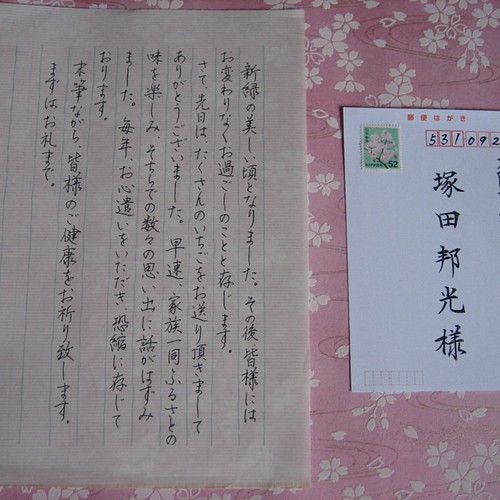 新緑の美しい頃となりました。その後皆様には
お変わりなくお過ごしのことと存じます。
さて、先日は、たくさんのいちごをお送り頂きまして
ありがとうございました。早速、家族一同ふるさとの
味を楽しみ、そちらでの数々の思い出に話がはずみ
ました。毎年、お心遣いをいただき、恐縮に存じて
おります。
末筆ながら、皆様のご健康をお祈り致します。
まずはお礼まで。
郵便はがき
531092
52
塚田邦光様